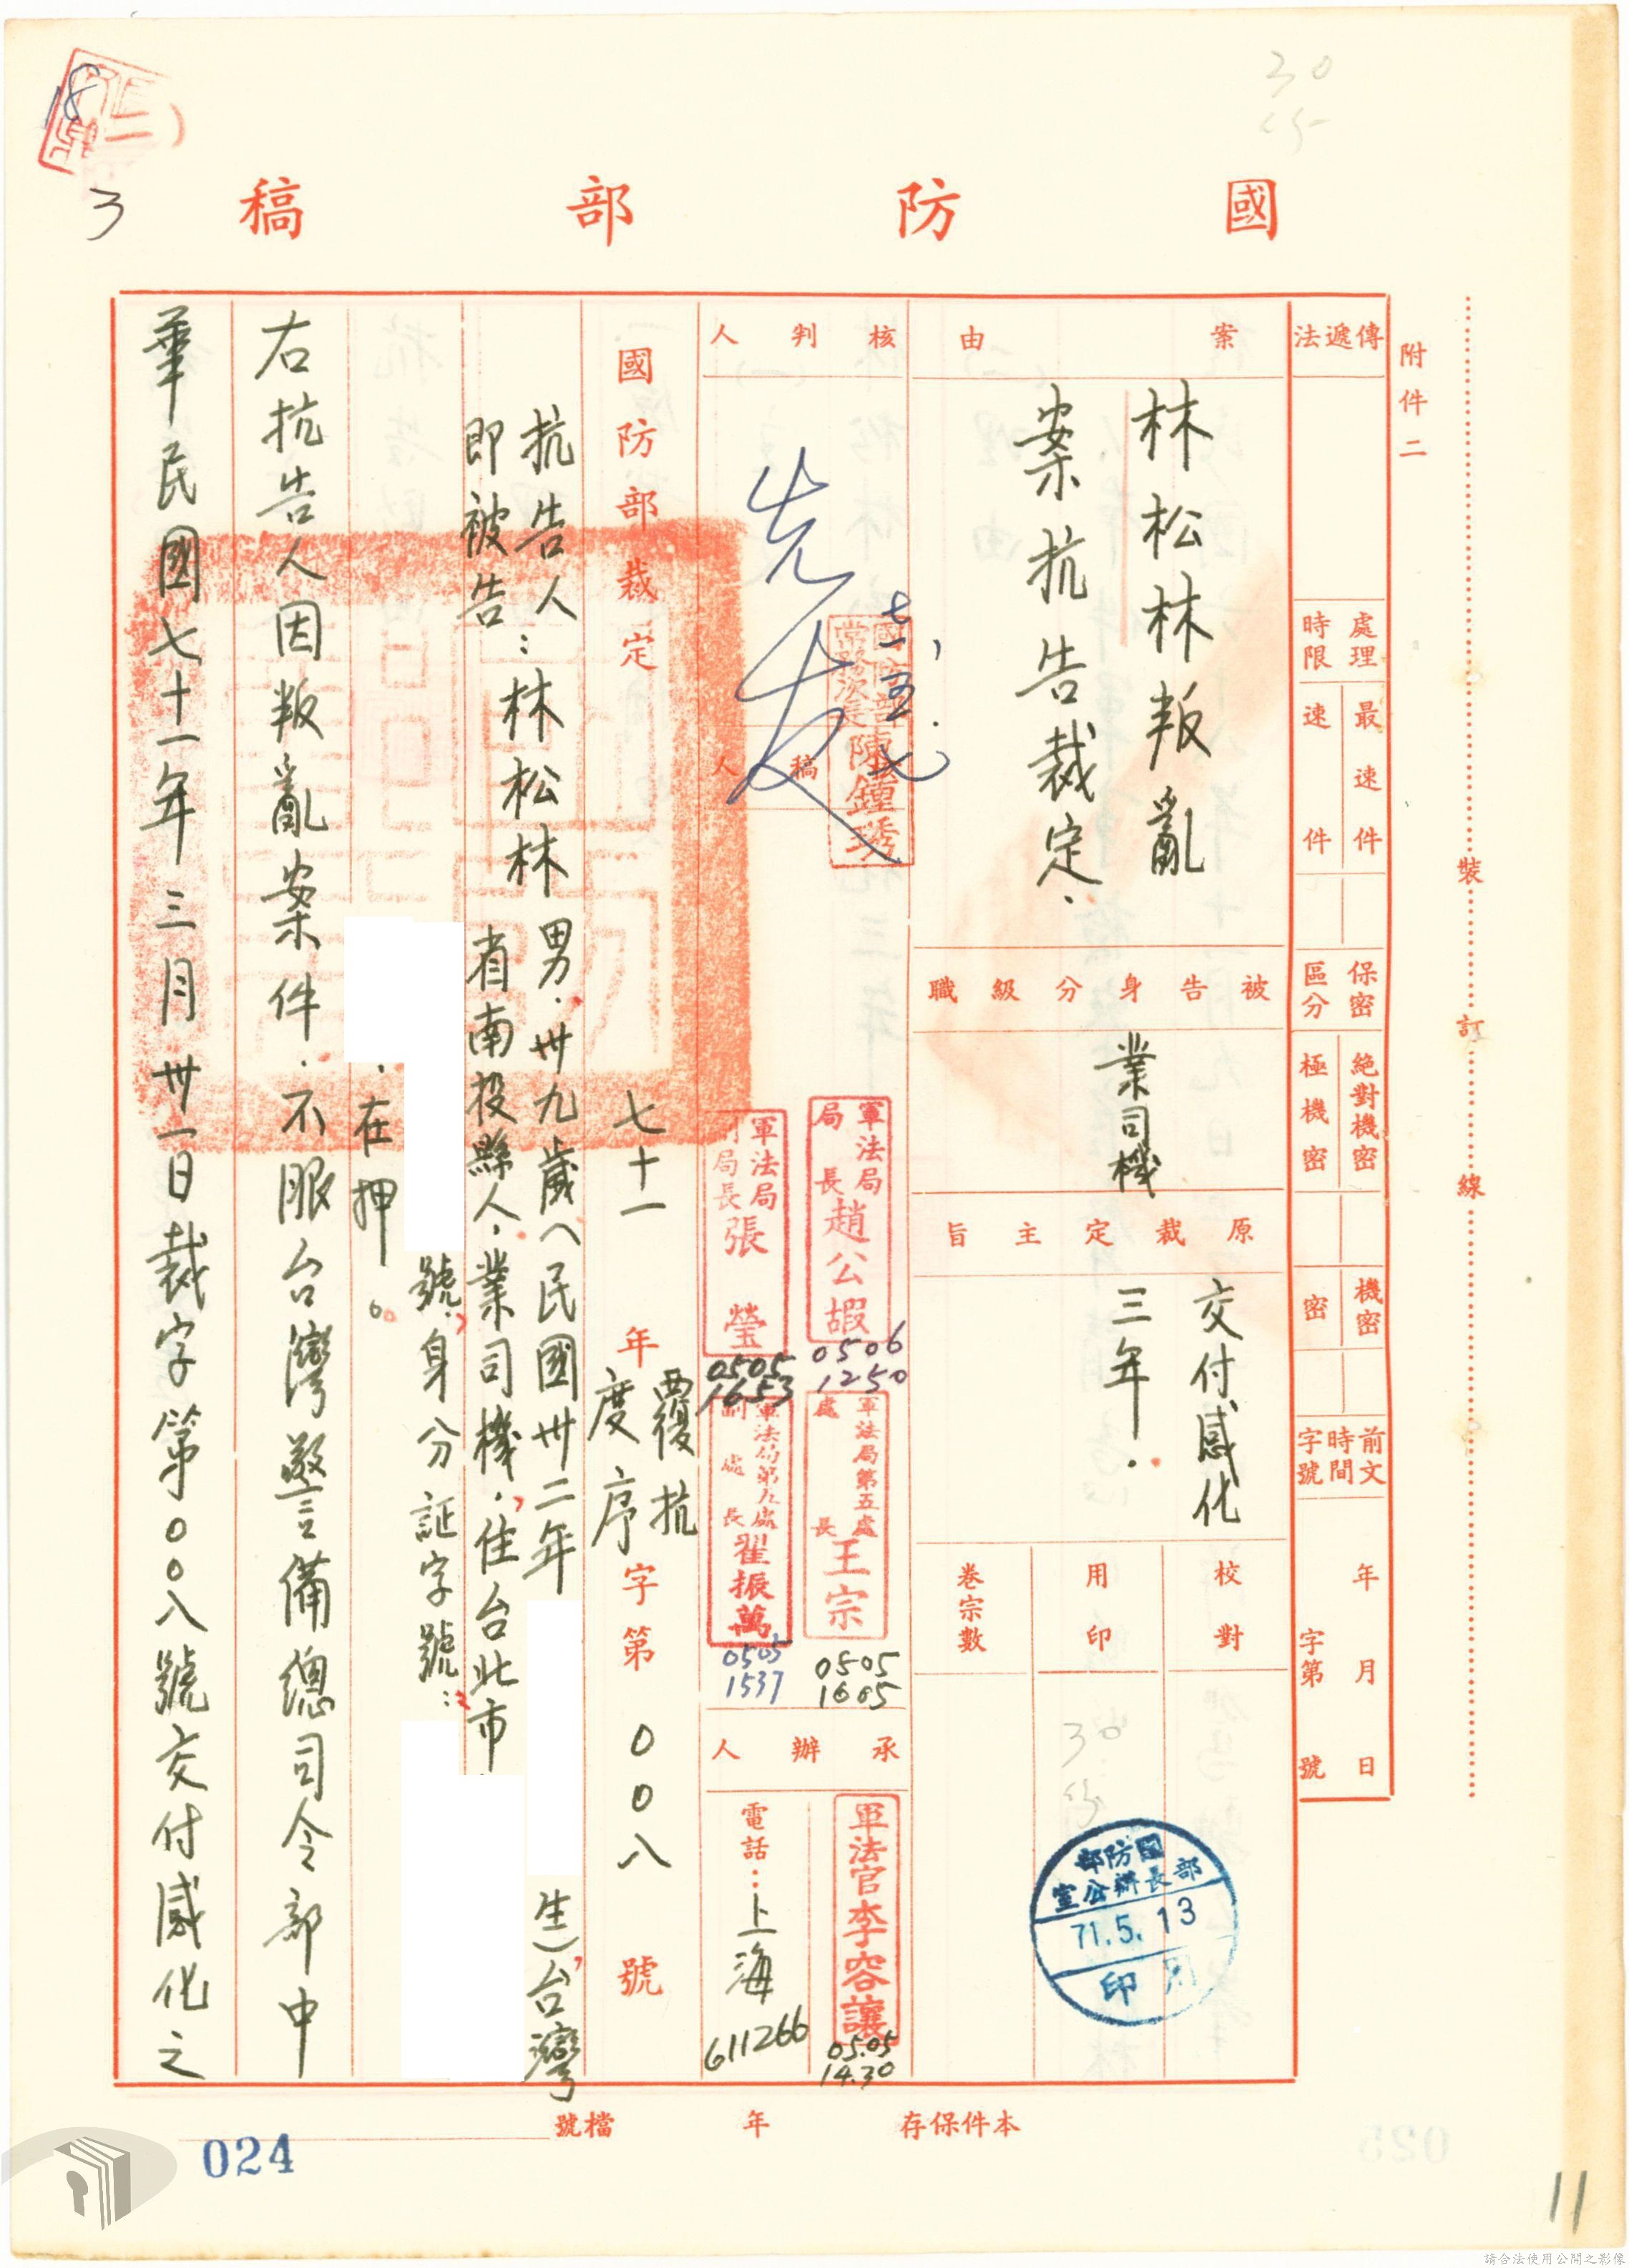 國防部稿
附件二
裝訂線
傳遞法
處理時限
最速件
速件
保密區分
絕對機密
極機密
機密
密
前文時間字號
年月日
字第號
案由
林松林叛亂
案抗告裁定.
被告身分級職
業司機
原裁定主旨
交付感化
三年.
校對
用印
卷宗數
國防部
部長辦公室
71.5.13
印
核判人
七一、五.七
國防部
常務次長
陳鍾琇
稿人
軍法局
局長
趙公嘏
0506
1250
軍法局
副局長
張瑩
0505
1653
軍法局第五處
處長
王宗
0505
1605
副處長
翟振萬
0505
1537
承辦人
軍法官李容讓
05.05
14.30
電話:上海
611266
國防部裁定
七十一年度覆抗序字第00八號
抗告人:林松林男.卅九歲(民國卅二年
生),台灣
即被告
省南投縣人.業司機.住台北市
號.身分証字號:
.在押。
右抗告人因叛亂案件.不服台灣警備總司令部中
華民國七十一年三月卅一日裁字第00八號交付感化之
本件保存年檔號
024
025
18
3
30
11
請合法使用公開之影像